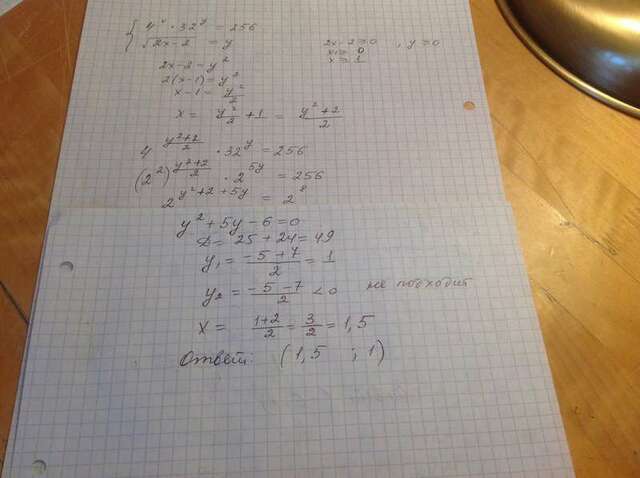 { 4^x · 32^y = 256
√(2x-2) = y
2x-2≥0 , y≥0
x≥ 1
2x-2=y²
2(x-1)=y²
x-1= y²/2
x= y²/2 +1 = (y²+2)/2
4^((y²+2)/2) · 32^y = 256
(2²)^((y²+2)/2) · 2^(5y) = 256
2^(y²+2+5y) = 2^8
y²+5y-6=0
D= 25+24=49
y₁= (-5+7)/2 = 1
y₂= (-5-7)/2 <0 не подходит
x= (1+2)/2 = 3/2 = 1,5
Ответ: (1,5 ; 1)